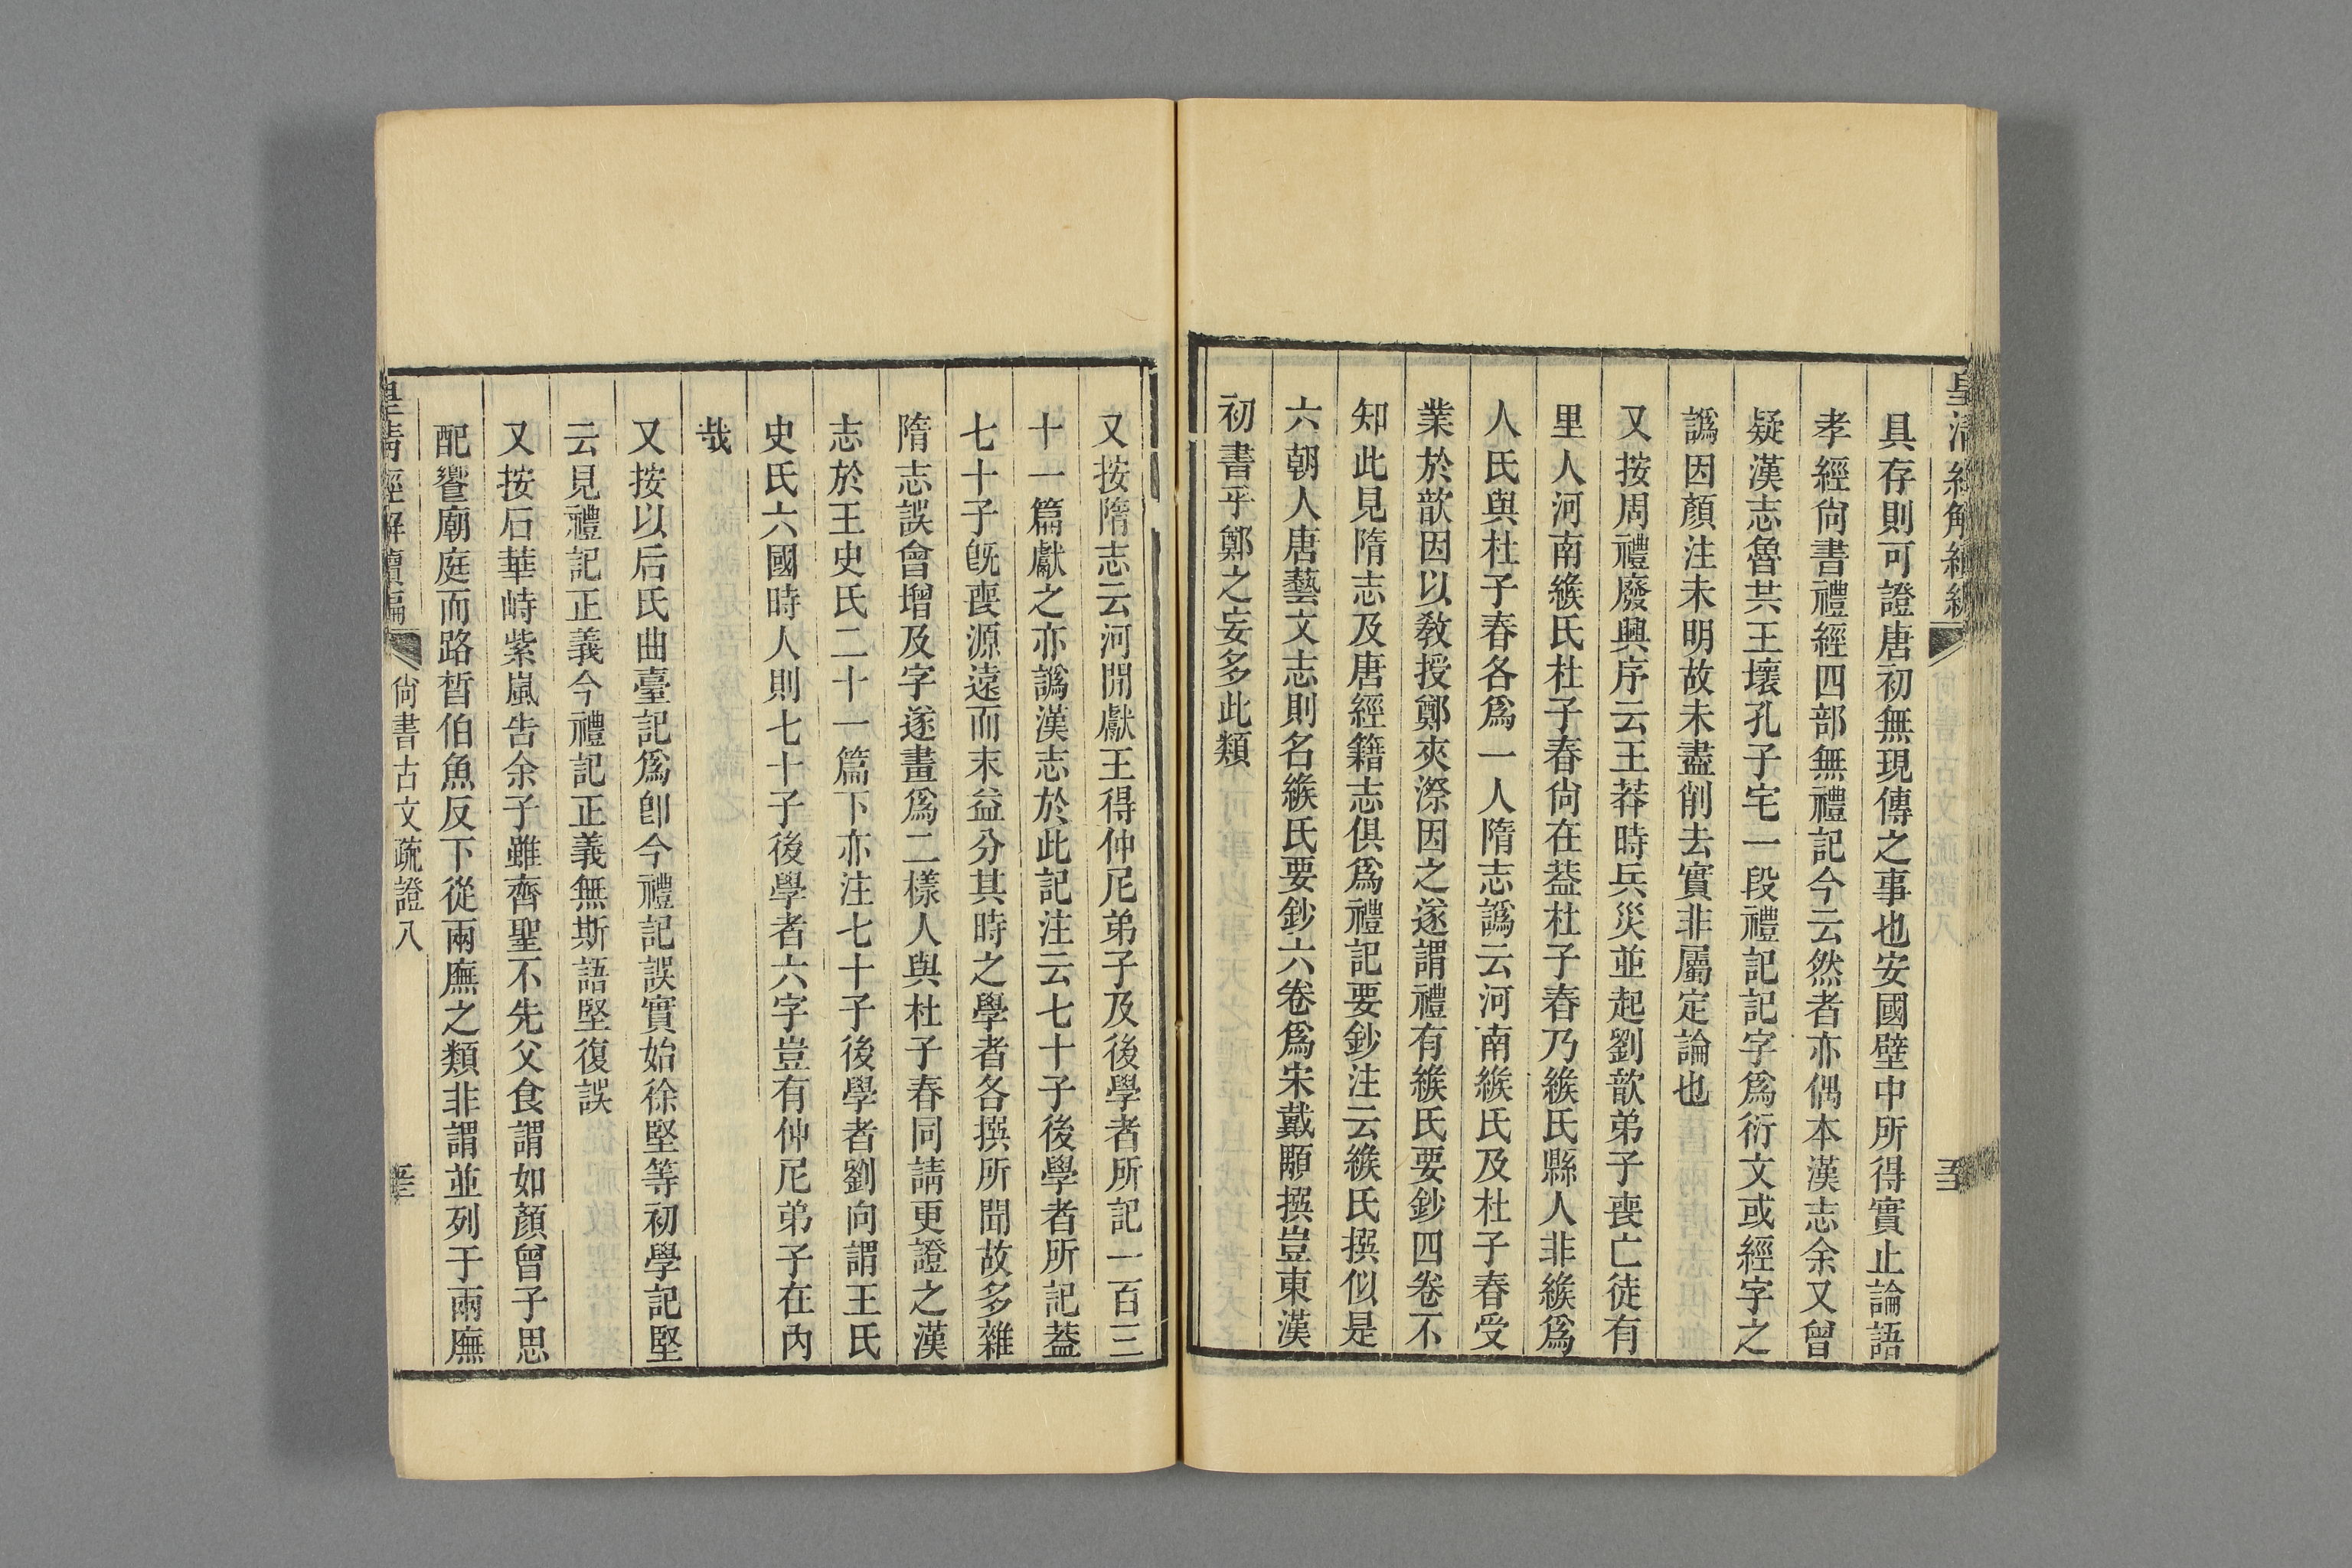 皇清經解續編
具存則可證唐初無現傳之事也安國壁中所得實止論語
孝經尙書禮經四部無禮記今云然者亦偶本漢志余又曾
疑漢志魯共王壞孔子宅一段禮記記字爲衍文或經字之
譌因顏注未明故未盡削去實非屬定論也
又按周禮廢興序云王莽時兵災並起劉歆弟子喪亡徒有
里人河南緱氏杜子春尙在葢杜子春乃緱氏縣人非緱爲
人氏與杜子春各爲一人隋志譌云河南緱氏及杜子春受
業於歆因以敎授鄭夾漈因之遂謂禮有緱氏要鈔四卷不
知此見隋志及唐經籍志俱爲禮記要鈔注云緱氏撰似是
六朝人唐藝文志則名緱氏要鈔六卷爲宋戴顒撰豈東漢
初書乎鄭之妄多此類
又按隋志云河閒獻王得仲尼弟子及後學者所記一百三
十一篇獻之亦譌漢志於此記注云七十子後學者所記葢
七十子旣喪源遠而末益分其時之學者各撰所聞故多雜
隋志誤會增及字遂畫爲二樣人與杜子春同請更證之漢
志於王史氏二十一篇下亦注七十子後學者劉向謂王氏
史氏六國時人則七十子後學者六字豈有仲尼弟子在內
哉
又按以后氏曲臺記爲卽今禮記誤實始徐堅等初學記堅
云見禮記正義今禮記正義無斯語堅復誤
又按石華峙紫嵐告余子雖齊聖不先父食謂如顏曾子思
配饗廟庭而路晳伯魚反下從兩廡之類非謂並列于兩廡
皇淸經解續編
尙書古文疏證八